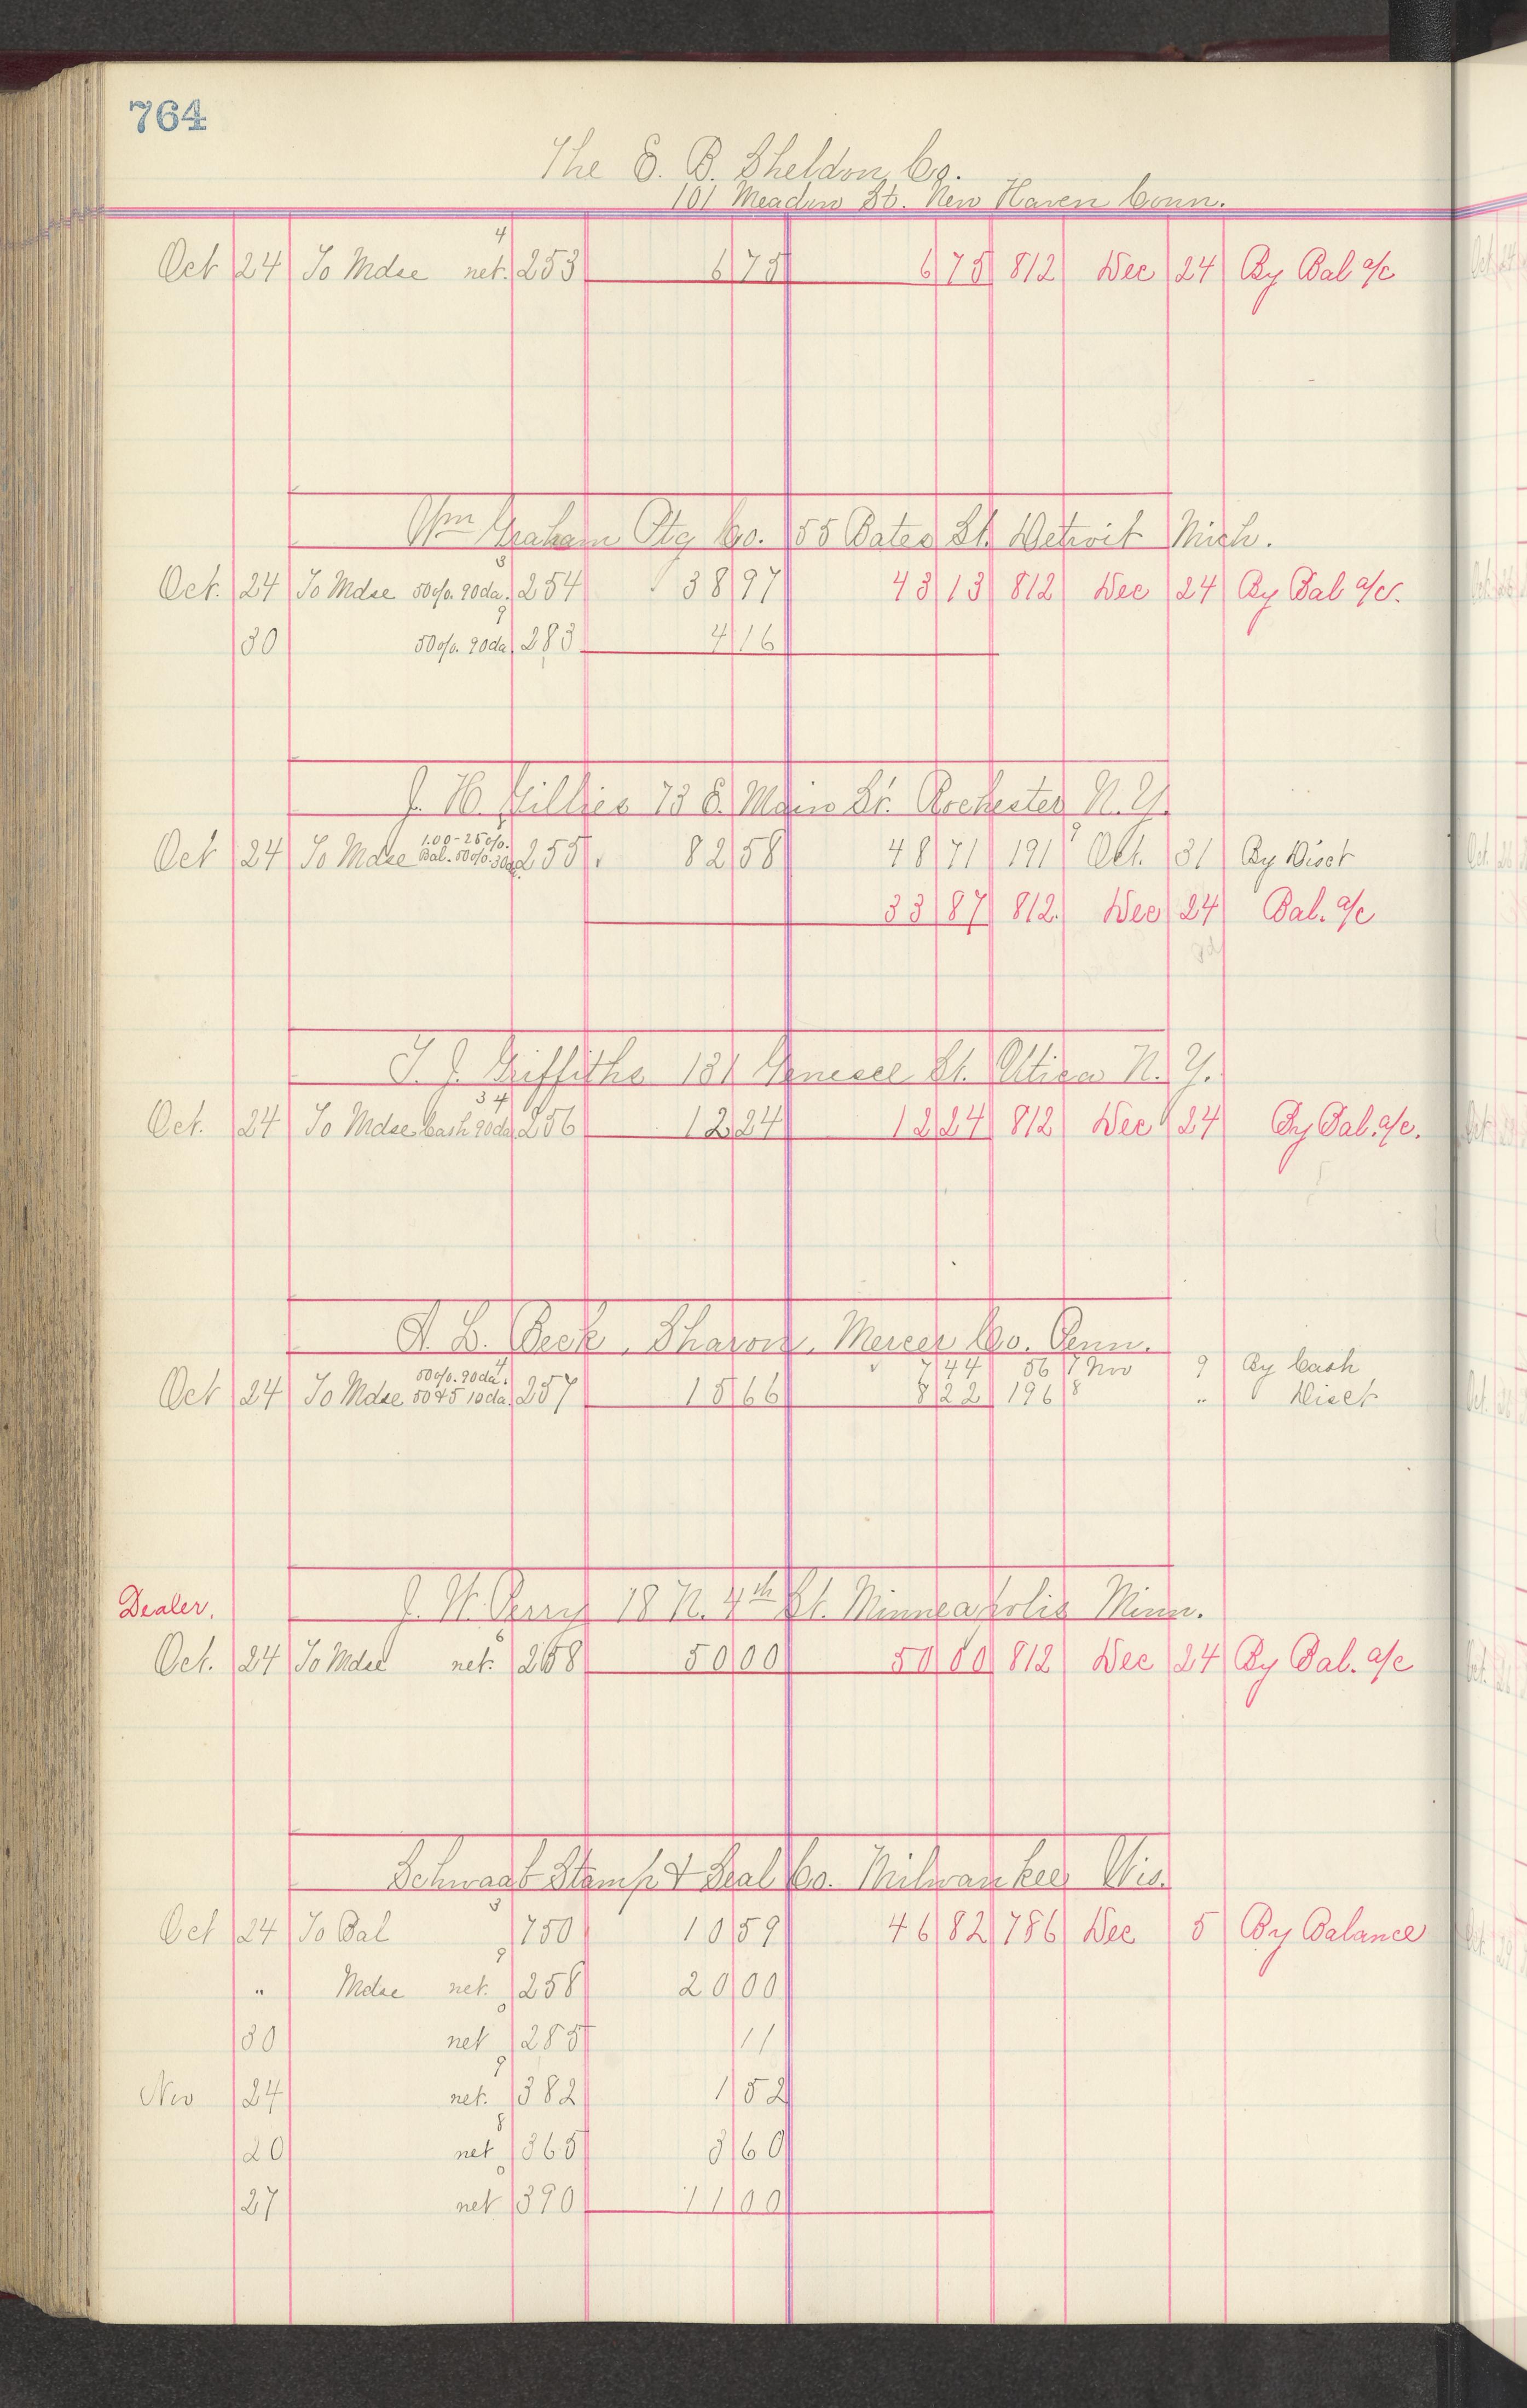 764
The E. B. Sheldon Co.
101 Meadow St. New Haven Conn.
4
Oct 24 To Mdse net. 253 6 75 6 75 812 Dec 24 By Bal a/c
Wm Graham Ptg Co. 55 Bates St. Detroit Mich.
3
Oct. 24 To Mdse 50%. 90da. 254 38 97 43 13 812 Dec 24 By Bal a/c.
9
30 50%. 90da 283 4 16
J. H. Gillies 73 E. Main St. Rochester N. Y.
1.00 - 25%.
Oct 24 To Mdse Bal. 50%. 30da. 255 82 58 48 71 191 9 Oct. 31 By Disct
33 87 812. Dec 24 Bal. a/c
T. J. Griffiths 131 Genesee St. Utica N. Y.
3 4
Oct. 24 To Mdse Cash 90da 256 12 24 12 24 812 Dec 24 By Bal. a/c.
A. L. Beck, Sharon, Mercer Co. Penn.
50%. 90da. 4 7 44 56 7 Nov 9 By Cash
Oct 24 To Mdse 50 & 5 10da. 257 15 66 8 22 196 8 " Disct
Dealer. J. W. Perry 18 N. 4th St. Minneapolis Minn.
6
Oct. 24 To Mdse net. 258 50 00 50 00 812 Dec 24 By Bal. a/c
Schwaab Stamp & Seal Co. Milwaukee Wis.
3
Oct 24 To Bal 750 10 59 46 82 786 Dec 5 By Balance
9
" Mdse net. 258 20 00
0
30 net 285 11
9
Nov 24 net. 382 1 52
8
20 net 365 3 60
0
27 net 390 11 00